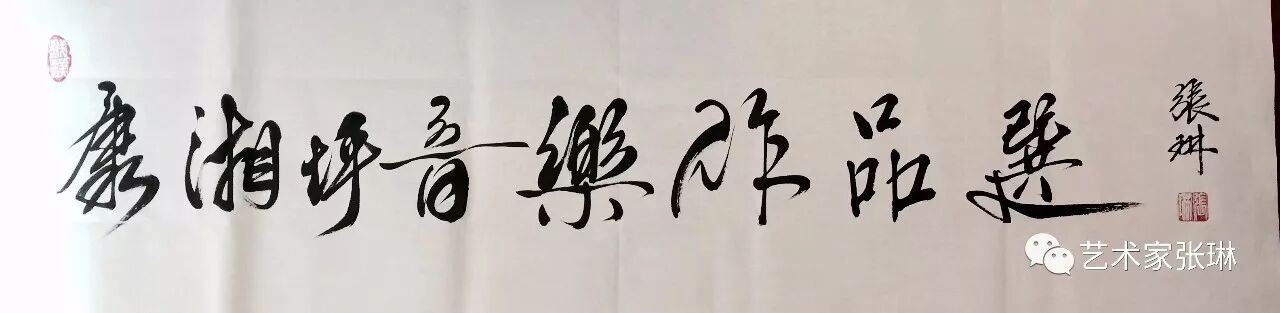 康湘坪音樂作品選
張琳
艺术家张琳